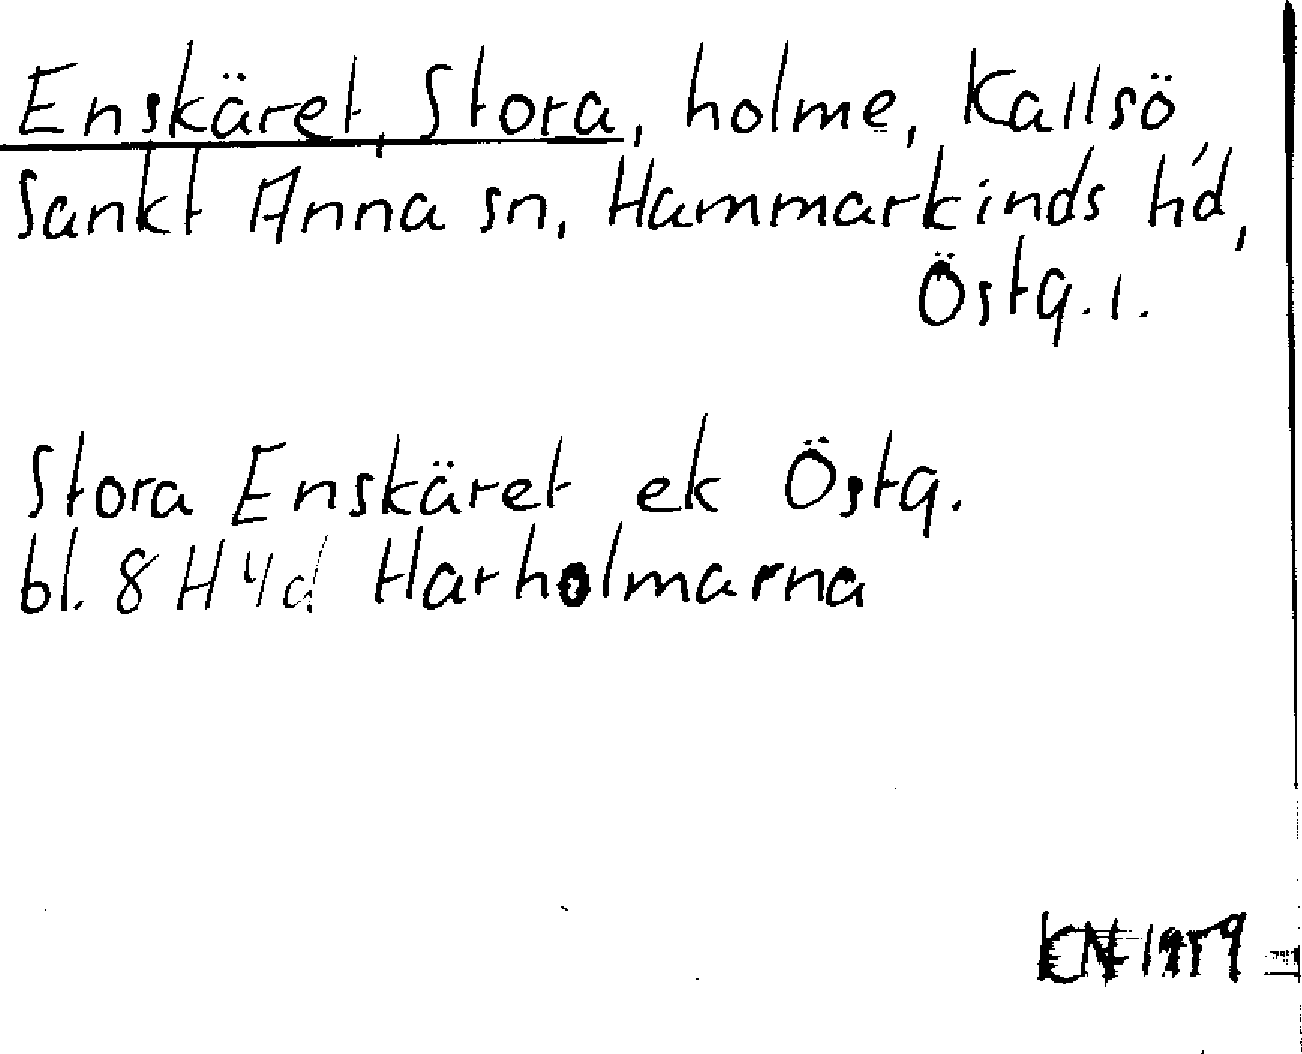 Enskäret, Stora, holme, Kallsö,
Sankt Anna sn, Hammarkinds hd,
Östg. l.
Stora Enskäret ek Östg.
bl. 8 H 4d Harholmarna